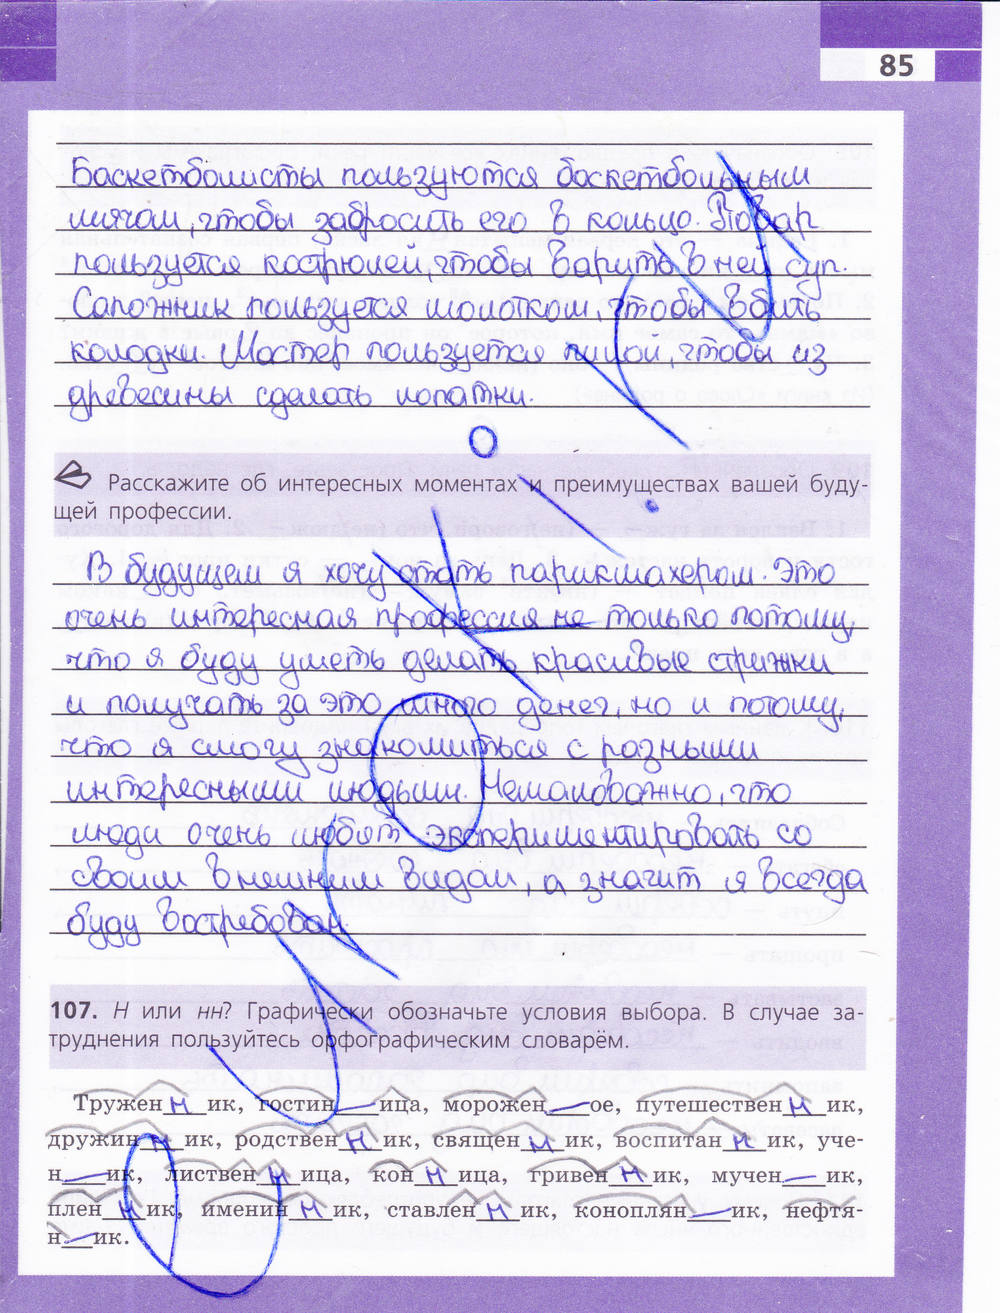 85
Баскетболисты пользуются баскетбольным
мячом, чтобы забросить его в кольцо. Повар
пользуется кострюлей, чтобы варить в ней суп.
Сапожник пользуется молотком, чтобы вбить
колодки. Мастер пользуется пилой, чтобы из
древесины сделать лопатки.
Расскажите об интересных моментах и преимуществах вашей буду-
щей профессии.
В будущем я хочу стать парикмахером. Это
очень интересная профессия не только потому,
что я буду уметь делать красивые стрижки
и получать за это много денег, но и потому,
что я смогу знакомиться с разными
интересными людьми. Немаловажно, что
люди очень любят экспериментировать со
своим внешним видом, а значит я всегда
буду востребован.
107. Н или нн? Графически обозначьте условия выбора. В случае за-
труднения пользуйтесь орфографическим словарём.
Тружен н ик, гостин __ ица, морожен __ ое, путешествен н ик,
дружин н ик, родствен н ик, священ н ик, воспитан н ик, уче-
н __ ик, листвен н ица, кон н ица, гривен н ик, мучен __ ик,
плен н ик, именин н ик, ставлен н ик, коноплян __ ик, нефтя-
н __ ик.